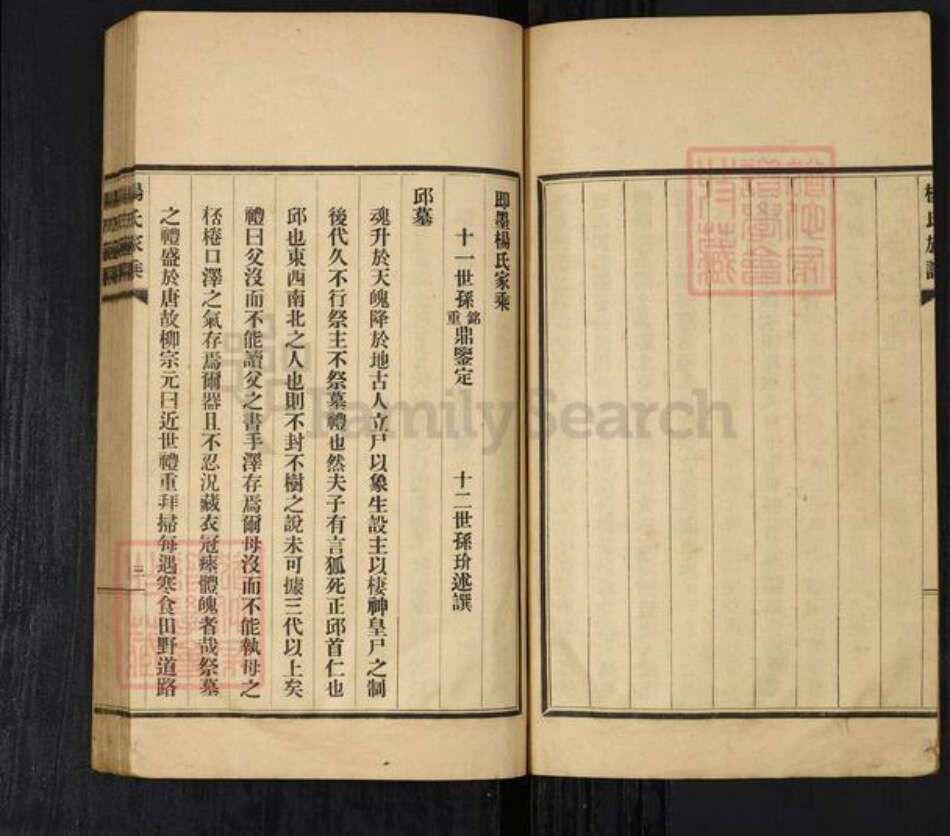 即墨楊氏家乘
十一世孫銘重鼎鑒定 十二世孫玠述譔
邱墓
魂升於天魄降於地古人立尸以象生設主以棲神皇尸之制
後代久不行祭主不祭墓禮也然夫子有言狐死正邱首仁也
邱也東西南北之人也則不封不樹之說未可據三代以上矣
禮曰父沒而不能讀父之書手澤存焉爾母沒而不能執母之
桮棬口澤之氣存焉爾器且不忍況藏衣冠瘞體魄者哉祭墓
之禮盛於唐故柳宗元曰近世禮重拜掃每遇寒食田野道路
楊氏家乘
FamilySearch